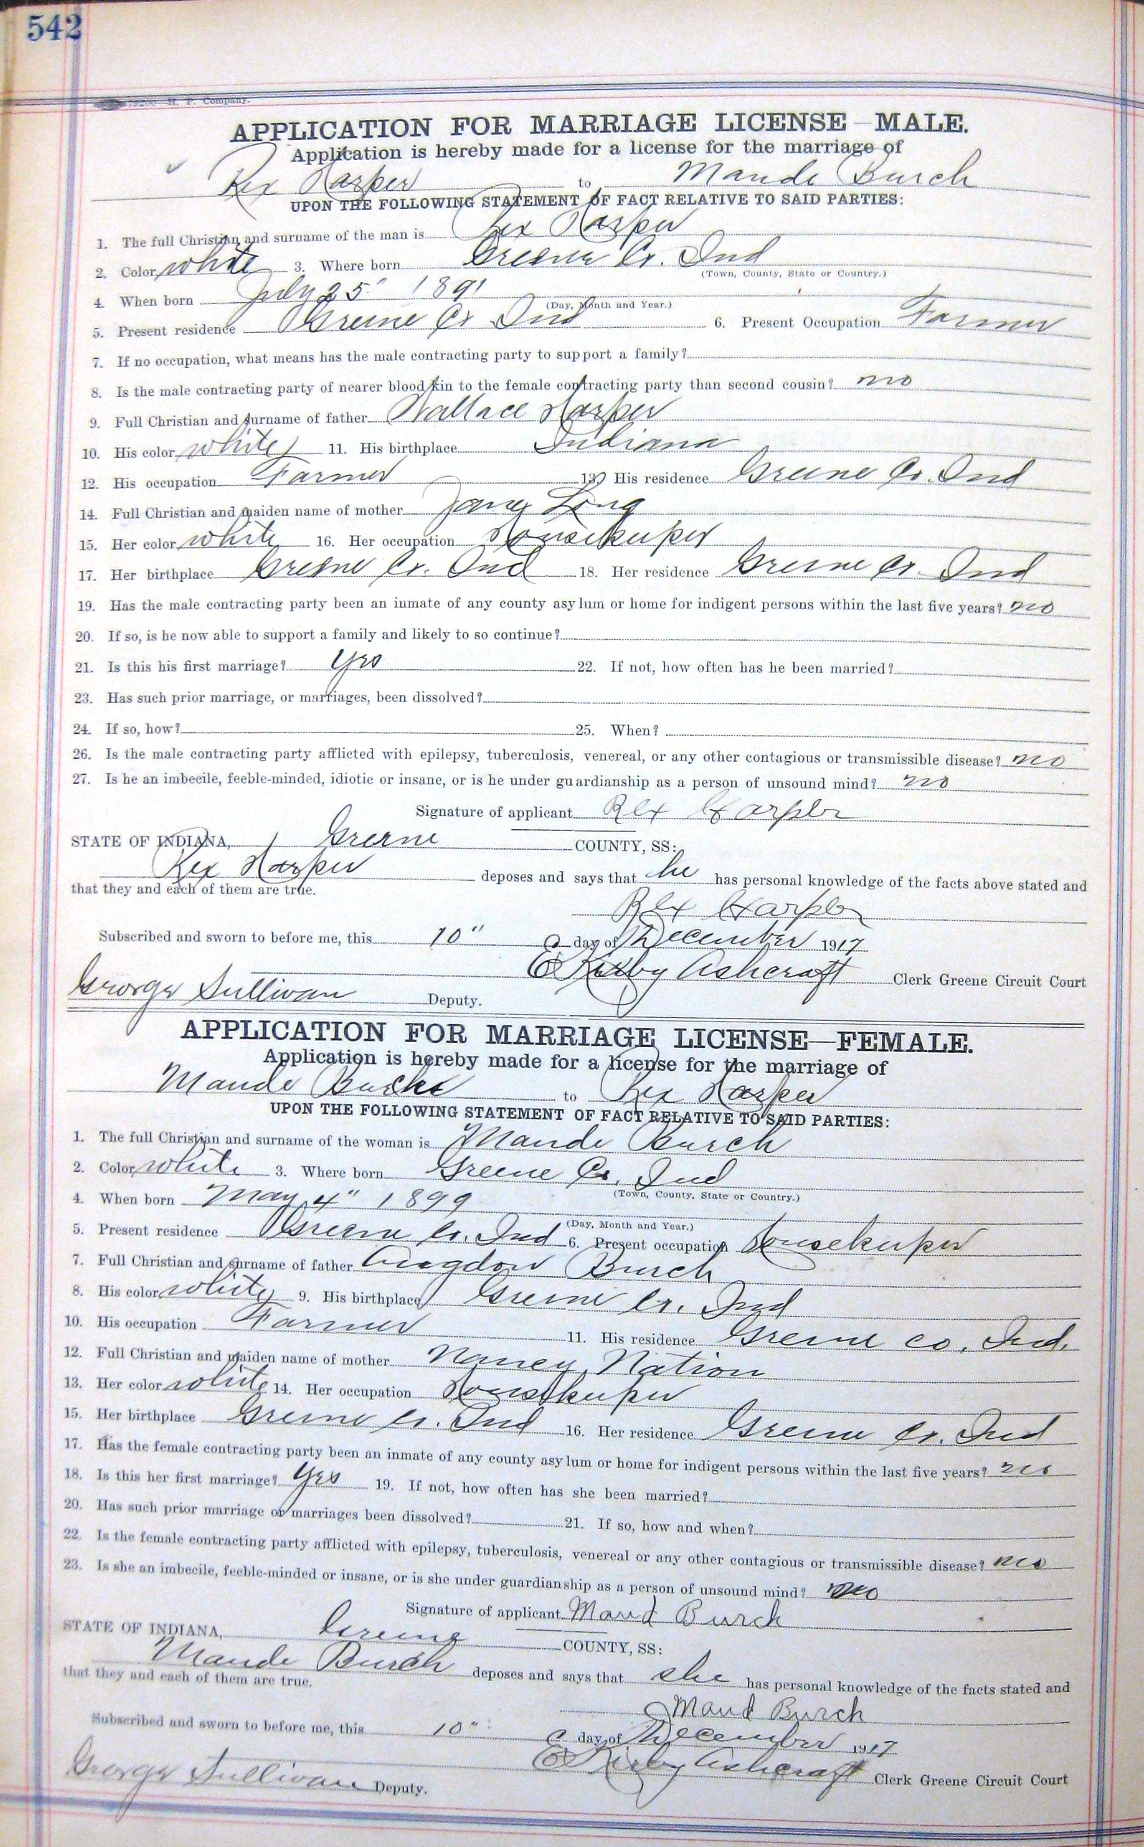 542
H. P. Company.
APPLICATION FOR MARRIAGE LICENSE—MALE.
Application is hereby made for a license for the marriage of
Rex Harper to Maude Burch
UPON THE FOLLOWING STATEMENT OF FACT RELATIVE TO SAID PARTIES:
1. The full Christian and surname of the man is Rex Harper
2. Color white 3. Where born Greene Co. Ind
(Town, County, State or Country.)
4. When born July 25" 1891
(Day, Month and Year.)
5. Present residence Greene Co Ind 6. Present Occupation Farmer
7. If no occupation, what means has the male contracting party to support a family?
8. Is the male contracting party of nearer blood kin to the female contracting party than second cousin? no
9. Full Christian and surname of father Wallace Harper
10. His color white 11. His birthplace Indiana
12. His occupation Farmer 13. His residence Greene Co. Ind
14. Full Christian and maiden name of mother Jane Long
15. Her color white 16. Her occupation Housekeeper
17. Her birthplace Greene Co. Ind 18. Her residence Greene Co. Ind
19. Has the male contracting party been an inmate of any county asylum or home for indigent persons within the last five years? no
20. If so, is he now able to support a family and likely to so continue?
21. Is this his first marriage? Yes 22. If not, how often has he been married?
23. Has such prior marriage, or marriages, been dissolved?
24. If so, how? 25. When?
26. Is the male contracting party afflicted with epilepsy, tuberculosis, venereal, or any other contagious or transmissible disease? no
27. Is he an imbecile, feeble-minded, idiotic or insane, or is he under guardianship as a person of unsound mind? no
Signature of applicant Rex Harper
STATE OF INDIANA, Greene COUNTY, SS:
Rex Harper deposes and says that he has personal knowledge of the facts above stated and
that they and each of them are true.
Rex Harper
Subscribed and sworn to before me, this 10" day of December 1917
E Kirby Ashcraft Clerk Greene Circuit Court
George Sullivan Deputy.
APPLICATION FOR MARRIAGE LICENSE—FEMALE.
Application is hereby made for a license for the marriage of
Maude Burch to Rex Harper
UPON THE FOLLOWING STATEMENT OF FACT RELATIVE TO SAID PARTIES:
1. The full Christian and surname of the woman is Maude Burch
2. Color white 3. Where born Greene Co. Ind
(Town, County, State or Country.)
4. When born May 4" 1899
(Day, Month and Year.)
5. Present residence Greene Co. Ind 6. Present occupation Housekeeper
7. Full Christian and surname of father Burch
8. His color white 9. His birthplace Greene Co. Ind
10. His occupation Farmer 11. His residence Greene Co. Ind.
12. Full Christian and maiden name of mother Nancy Nation
13. Her color white 14. Her occupation Housekeeper
15. Her birthplace Greene Co. Ind 16. Her residence Greene Co. Ind
17. Has the female contracting party been an inmate of any county asylum or home for indigent persons within the last five years? no
18. Is this her first marriage? Yes 19. If not, how often has she been married?
20. Has such prior marriage or marriages been dissolved? 21. If so, how and when?
22. Is the female contracting party afflicted with epilepsy, tuberculosis, venereal or any other contagious or transmissible disease? no
23. Is she an imbecile, feeble-minded or insane, or is she under guardianship as a person of unsound mind? no
Signature of applicant Maud Burch
STATE OF INDIANA, Greene COUNTY, SS:
Maude Burch deposes and says that she has personal knowledge of the facts stated and
that they and each of them are true.
Maud Burch
Subscribed and sworn to before me, this 10" day of December 1917
E Kirby Ashcraft Clerk Greene Circuit Court
George Sullivan Deputy.